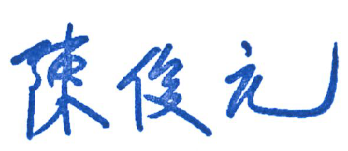 陳俊元